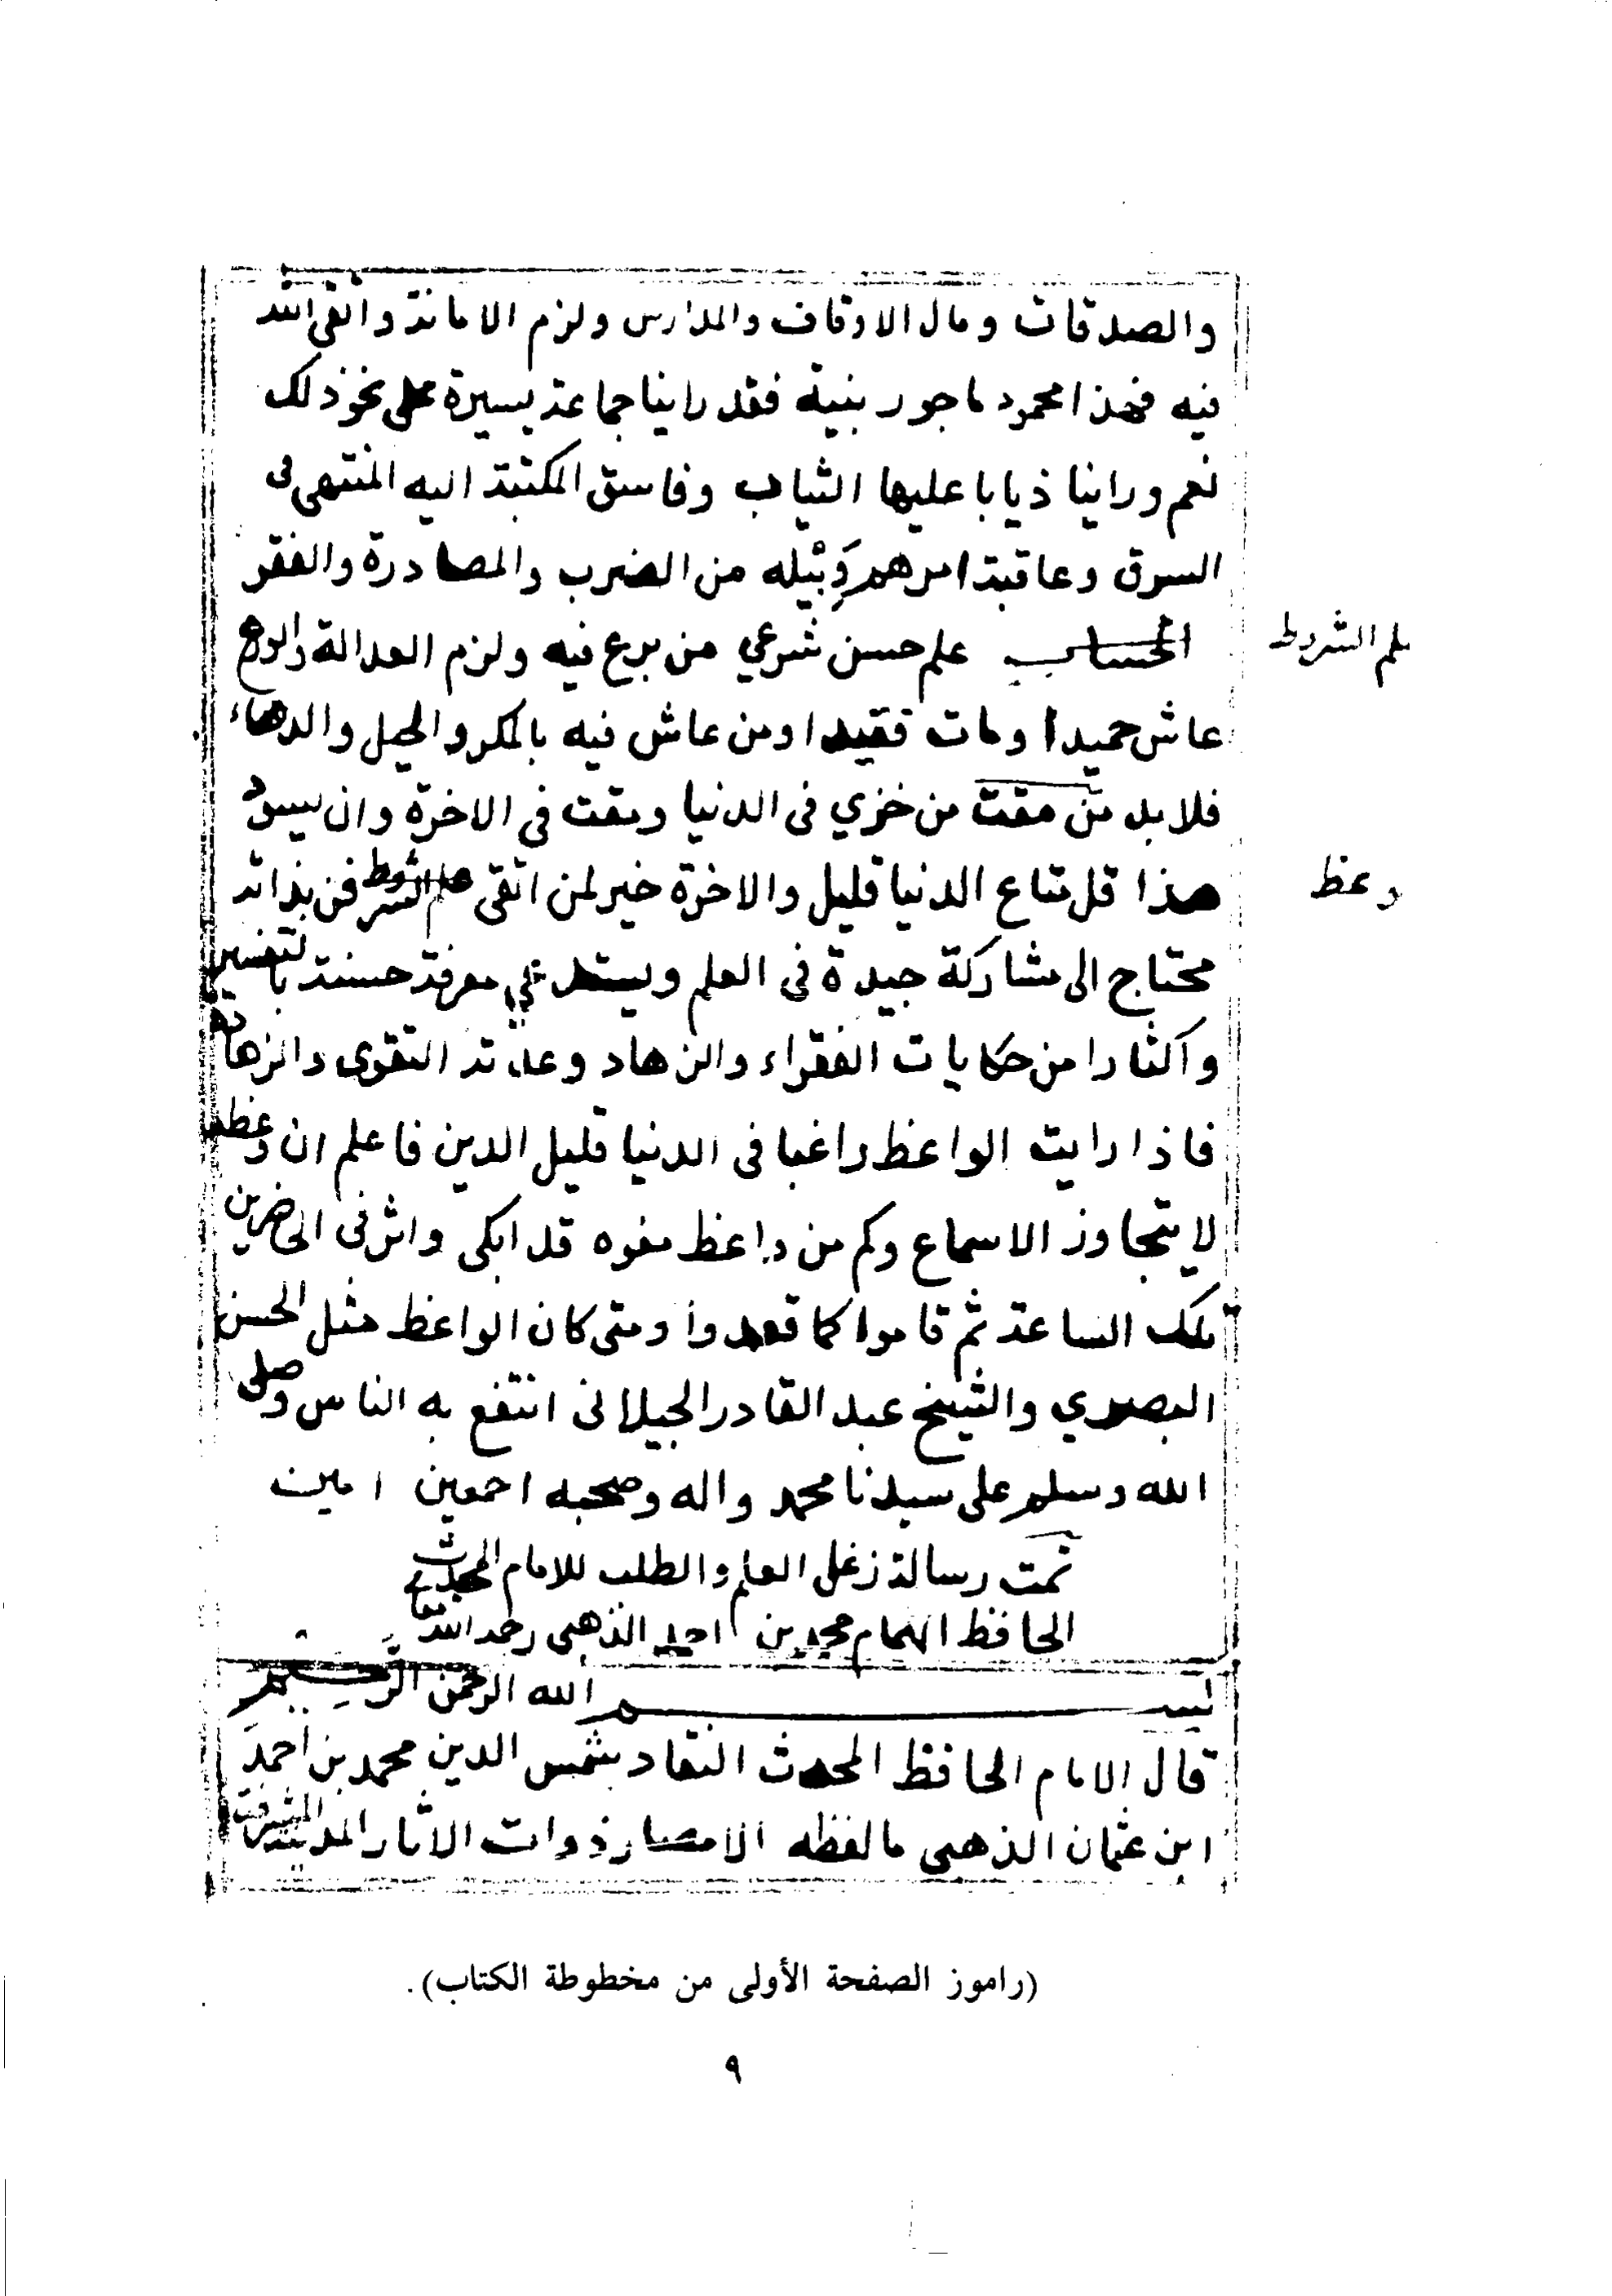 والصدقات ومال الاوقاف والمدارس ولزم الامانة واتقى الله
فيه فهذا محمود ماجور بنية فقد راينا جماعة يسيرة على نحو ذلك
نعم وراينا ذيابا عليها الثياب وفاسق المكتبة اليه المنتهى فى
السرق وعاقبة امرهم وَبْيله من الضرب والمصادرة والفقر
علم الشروط
الحساب علم حسن شرعي من برع فيه ولزم العدالة والورع
عاش حميدا ومات فقيدا ومن عاش فيه بالمكر والحيل والدهاء
فلابد من مقت من خزي فى الدنيا ومقت فى الاخرة وان يسود
وعظ
هذا قل متاع الدنيا قليل والاخرة خير لمن اتقى علم الشروط فن بذاته
محتاج الى مشاركة جيدة فى العلم ويستدعي معرفة حسنة بالتفسير
واكثارا من حكايات الفقراء والزهاد وعدته التقوى والزهادة
فاذا رايت الواعظ راغبا فى الدنيا قليل الدين فاعلم ان وعظه
لا يتجاوز الاسماع وكم من واعظ مفوه قد ابكى واثر فى الحاضرين
تلك الساعة ثم قاموا كما قعدوا ومتى كان الواعظ مثل الحسن
البصري والشيخ عبد القادر الجيلانى انتفع به الناس وصلى
الله وسلم على سيدنا محمد واله وصحبه اجمعين امين
تمت رسالة زغل العلم والطلب للامام المحدث
الحافظ الهمام محمد بن احمد الذهبى رحمه الله
بسم الله الرحمن الرحيم
قال الامام الحافظ المحدث النقاد شمس الدين محمد بن احمد
ابن عثمان الذهبى مالفظه الامصار ذوات الاثار المدينة المشرفة
(راموز الصفحة الأولى من مخطوطة الكتاب).
٩